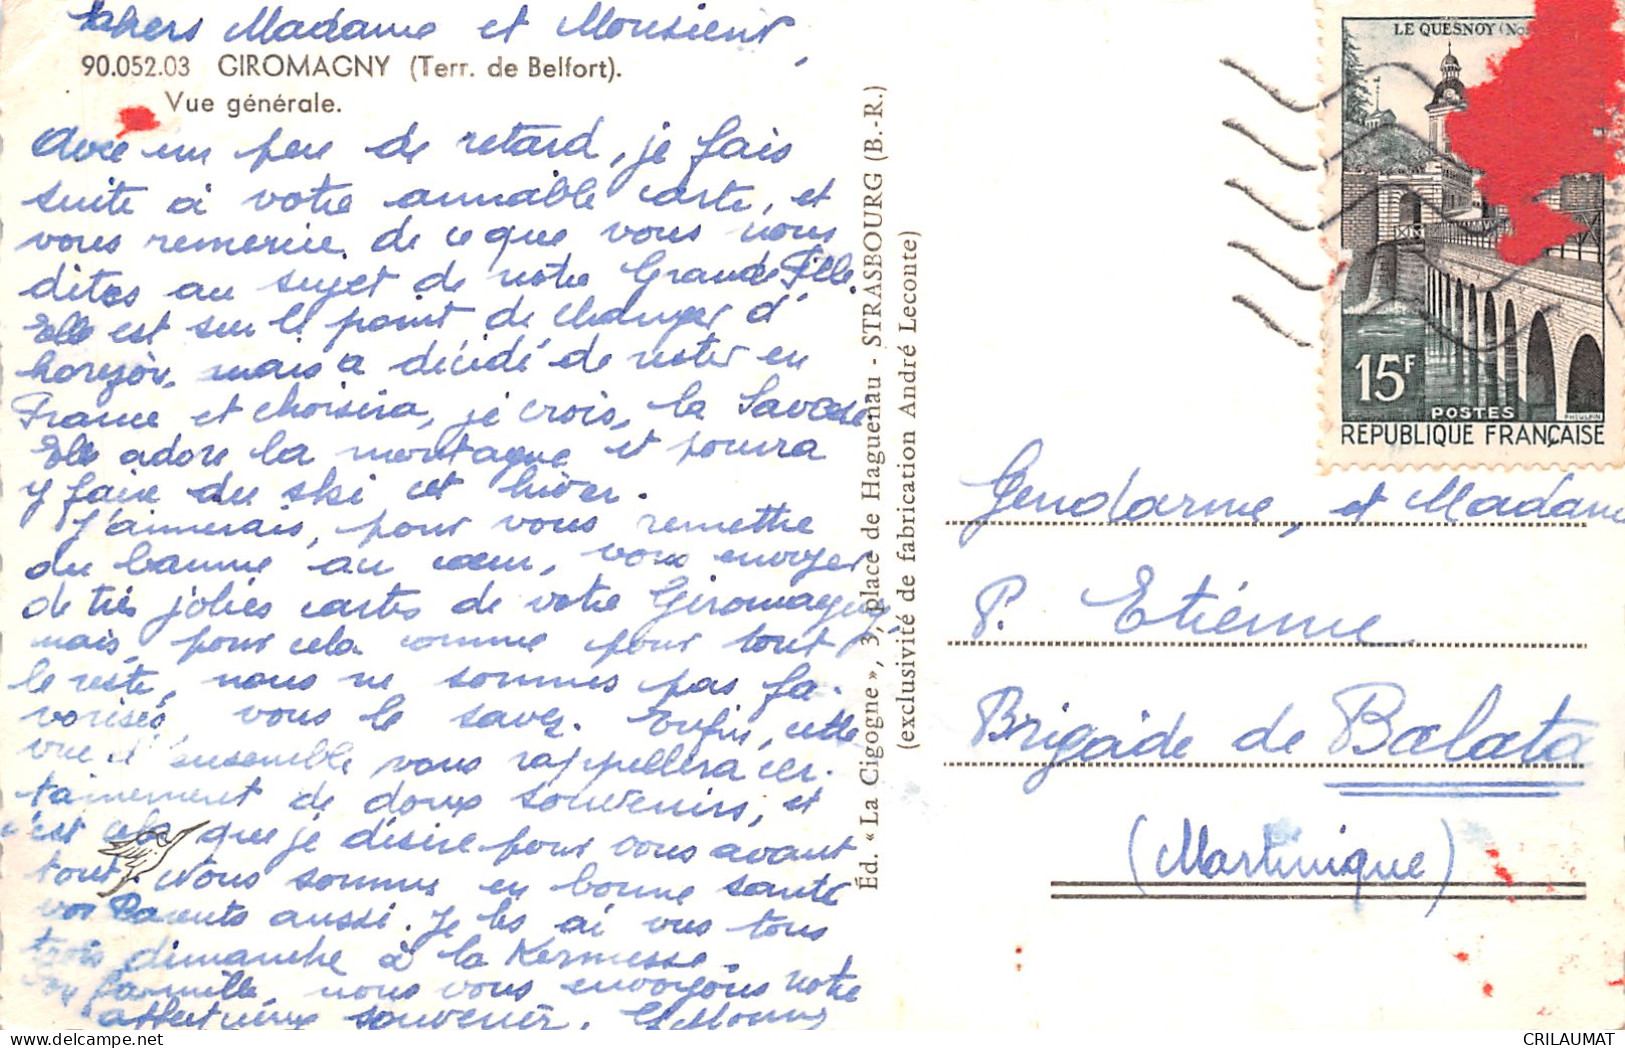 chers Madame et Monsieur,
90.052.03 GIROMAGNY (Terr. de Belfort).
Vue générale.
Avec un peu de retard, je fais
suite à votre aimable carte, et
vous remercie de ce que vous nous
dites au sujet de notre Grande Fille.
Elle est sur le point de changer d'
horizon, mais a décidé de rester en
France et choisira, je crois, la Savoie
Elle adore la montagne et pourra
y faire du ski cet hiver.
J'aimerais, pour vous remettre
du baume au cœur, vous envoyer
de très jolies cartes de votre Giromagny
mais, pour cela comme pour tout
le reste, nous ne sommes pas fa-
vorisés, vous le savez. Enfin, cette
vue d'ensemble vous rappellera cer-
tainement de doux souvenirs, et
c'est cela que je désire pour vous avant
tout. Nous sommes en bonne santé
vos Parents aussi. Je les ai vus tous
trois dimanche à la Kermesse.
En famille, nous vous envoyons notre
affectueux souvenir.
Éd. « La Cigogne », 3, place de Haguenau - STRASBOURG (B.-R.)
(exclusivité de fabrication André Leconte)
LE QUESNOY
15F
POSTES
PHEULPIN
RÉPUBLIQUE FRANÇAISE
Gendarme, et Madame
P. Etienne
Brigade de Balata
(Martinique)
CRILAUMAT